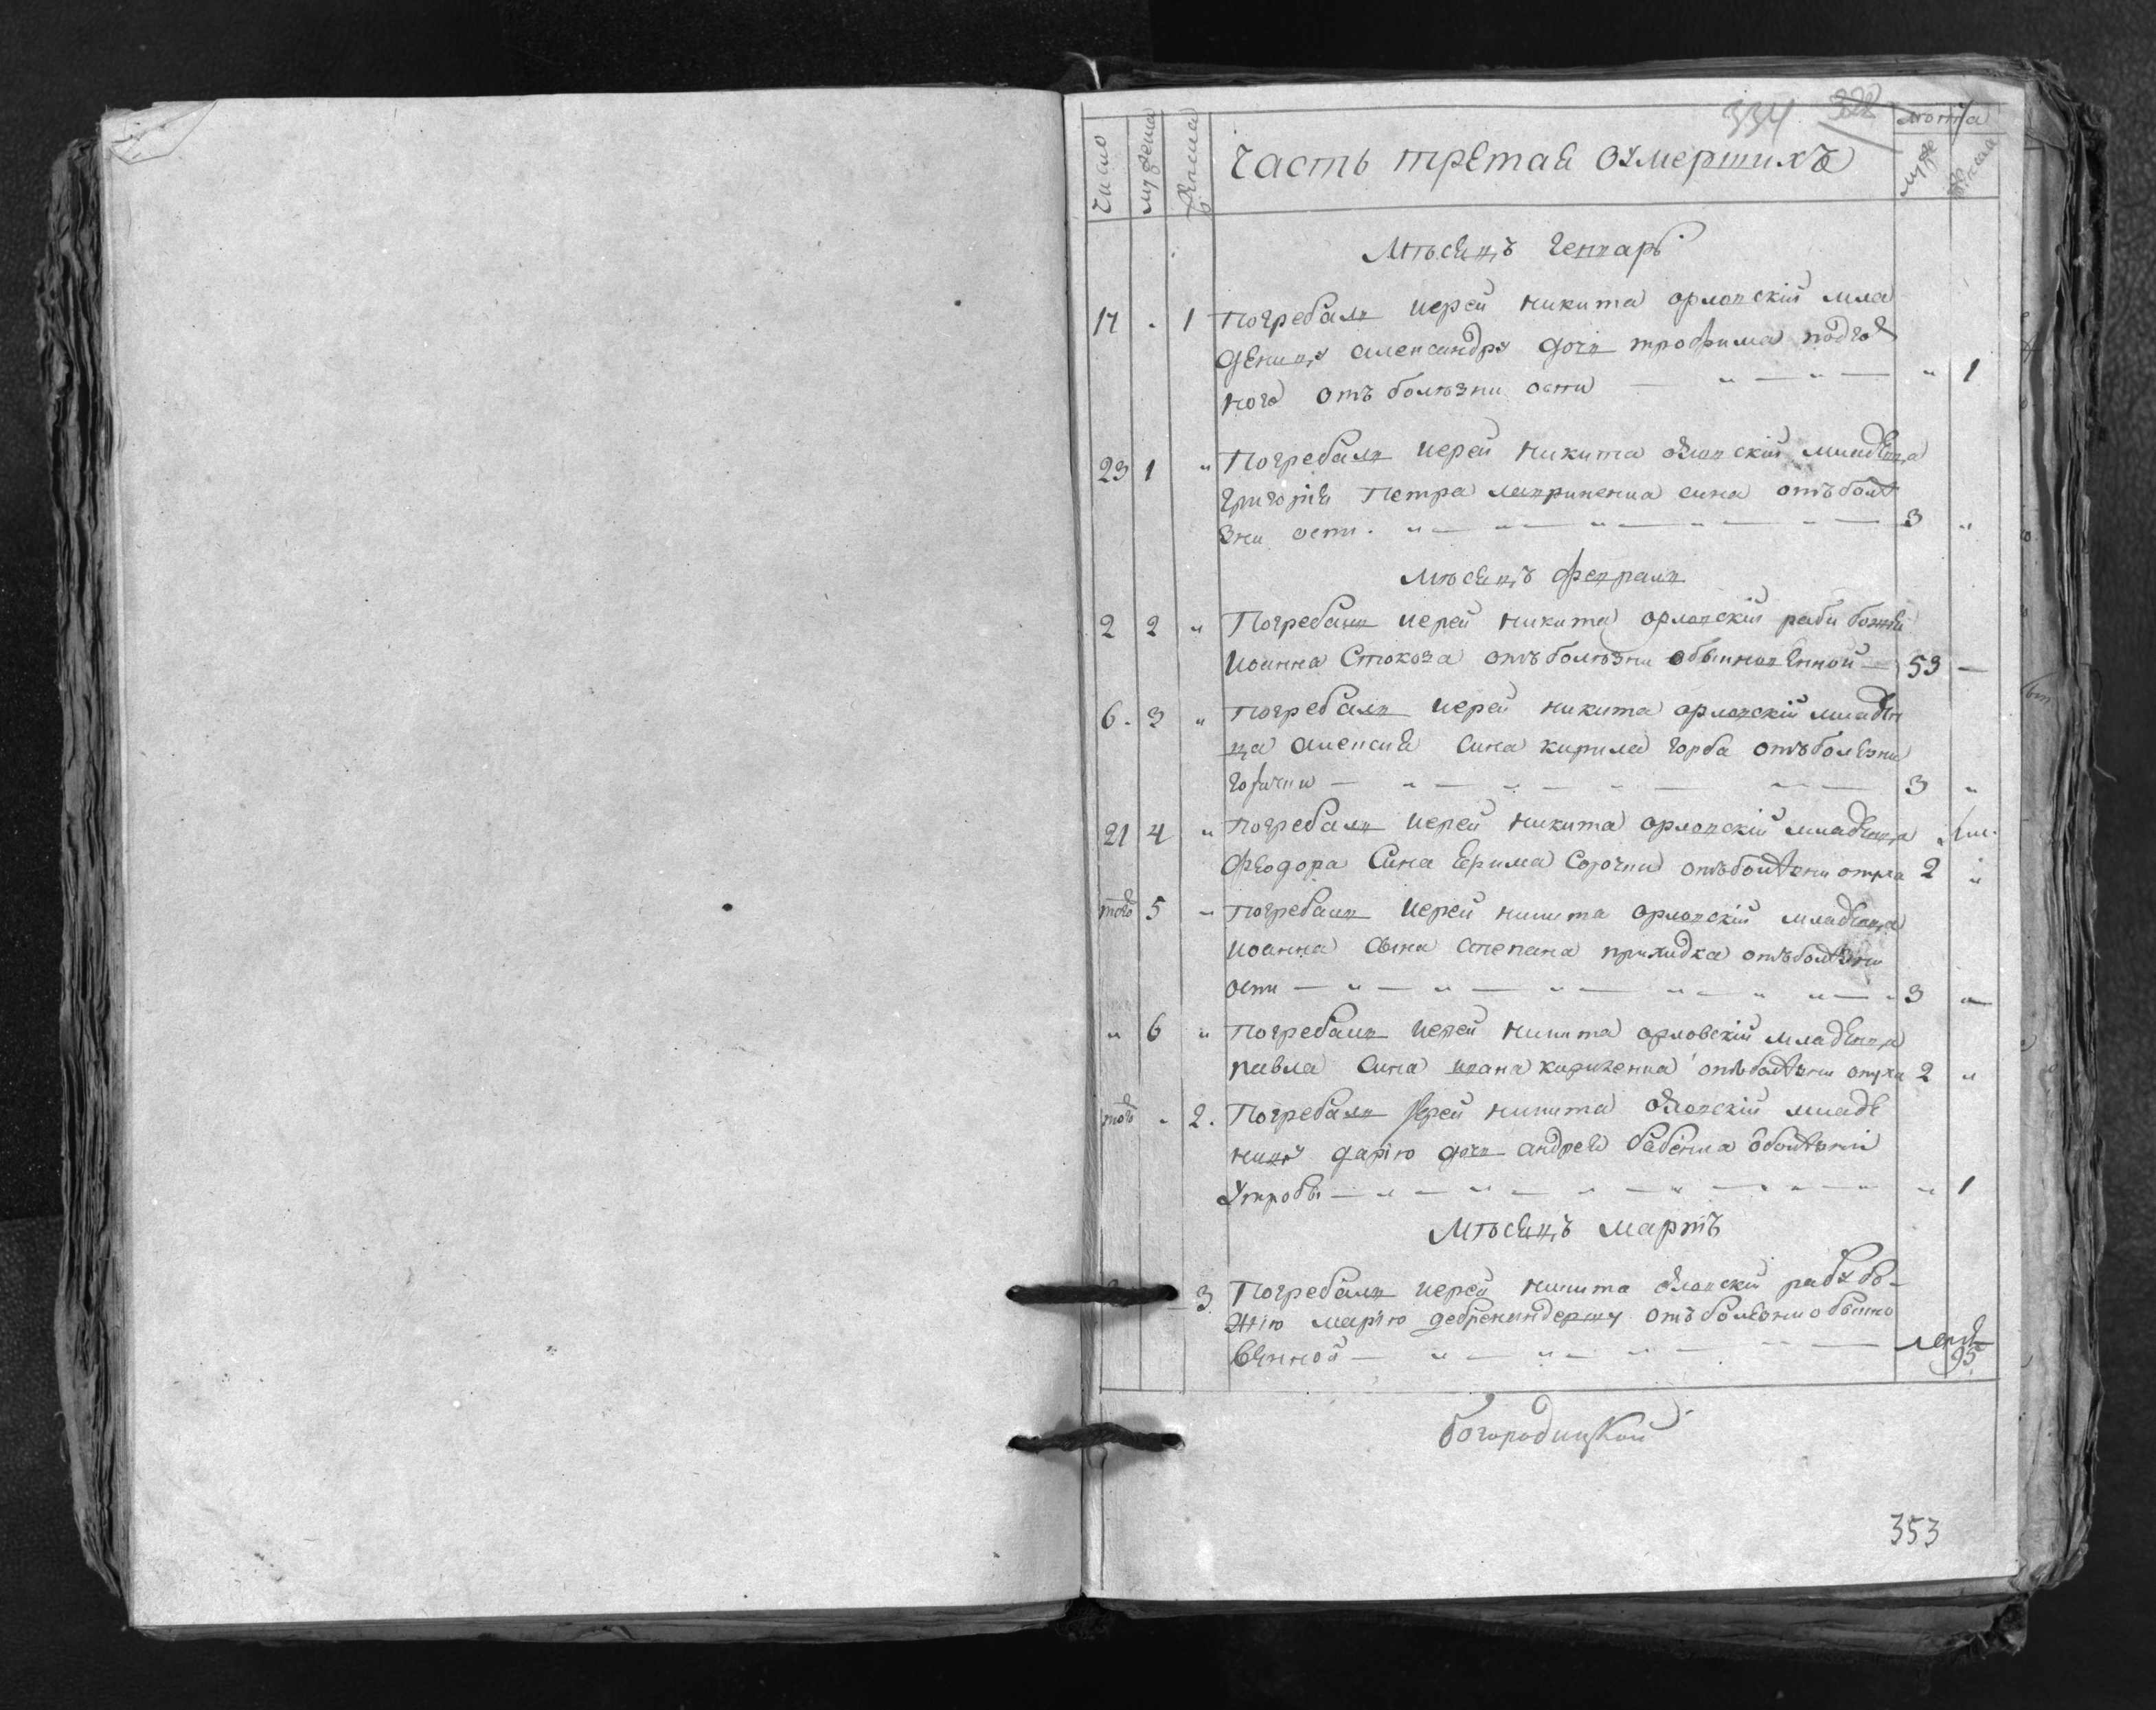 334 322
Число мужеска женска Часть третая оумершихъ лѣта муже женска
Мѣсецъ Генваръ
17 . 1 Погребалъ иерей никита орловскій мла
деницу александру дочъ трофима
ного отъ болѣзни оспи — „ — „ — „ 1
23 1 „ Погребалъ иерей никита орловскій младенца
григорія Петра сина отъ болѣ
зни оспи. „ — „ — „ — „ — „ — 3 „
Мѣсецъ февралъ
2 2 „ Погребалъ иерей никита орловскій раби божия
иоанна Стокоза отъ болѣзни обыкновенной — 53 —
6. 3 „ Погребалъ иерей никита орловскій младен
ца алексия сина кирила горба отъ болезни
горячки — „ — „ — „ — „ — 3 „
21 4 „ Погребалъ иерей никита орловскій младенца
Феодора Сина Ефима Сорочки отъ болѣзни 2 „
того 5 „ Погребалъ иерей никита орловскій младенца
иоанна сына степана приходка отъ болѣзни
оспи — „ — „ — „ — „ — „ — 3 „
„ 6 „ Погребалъ иерей никита орловскій младенца
павла Сина ивана кириченка отъ болѣзни 2 „
того „ 2. Погребалъ иерей никита орловскій младе
ницу дарію дочъ андрея бабенка ѿ болѣзни
Утробы — „ — „ — „ — „ — „ — „ 1
Мѣсецъ мартъ
3 Погребалъ иерей никита орловскій рабу бо-
жію марію отъ болезни обыкно
венной — „ — „ — „ — 95
Богородицкой
353